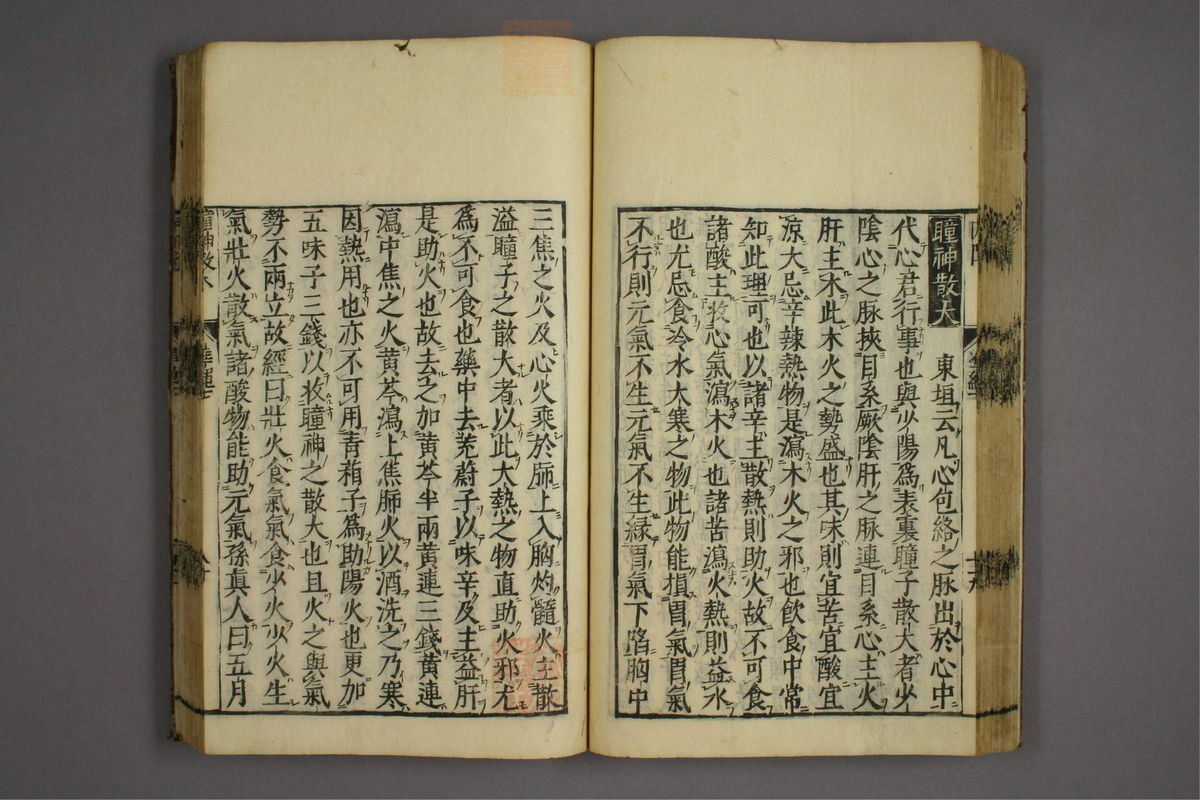 瞳神散大 東垣云凡心包絡之脉出於心中
代心君行事也與少陽爲表裏瞳子散大者少
陰心之脉挾目系厥陰肝之脉連目系心主火
肝主木此木火之勢盛也其味則宜苦宜酸宜
凉大忌辛辣熱物是瀉木火之邪也飲食中常
知此理可也以諸辛主散熱則助火故不可食
諸酸主收心氣瀉木火也諸苦瀉火熱則益水
也尤忌食冷水大寒之物此物能損胃氣胃氣
不行則元氣不生元氣不生緣胃氣下陷胸中
三焦之火及心火乘於肺上入胸灼髓火主散
溢瞳子之散大者以此大熱之物直助火邪尤
爲不可食也藥中去茺蔚子以味辛及主益肝
是助火也故去之加黄芩半兩黄連三錢黄連
瀉中焦之火黄芩瀉上焦肺火以酒洗之乃寒
因熱用也亦不可用青葙子爲助陽火也更加
五味子三錢以收瞳神之散大也且火之與氣
勢不兩立故經曰壯火食氣氣食少火少火生
氣壯火散氣諸酸物能助元氣孫眞人曰五月